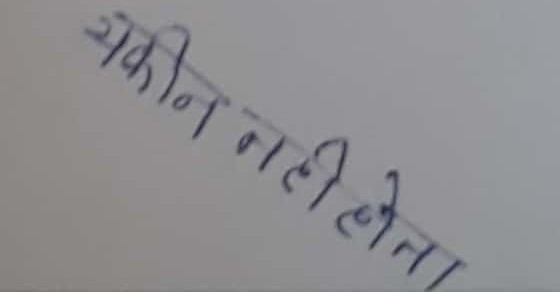 यकीन नही होता